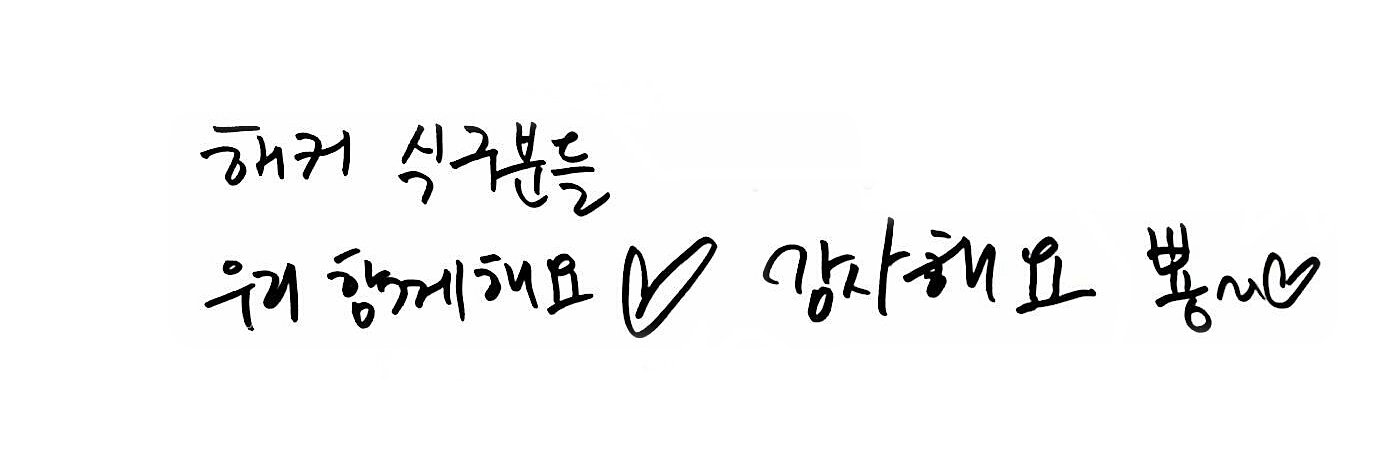 해커 식구분들
우리 함께해요♡ 감사해요 뿅~♡